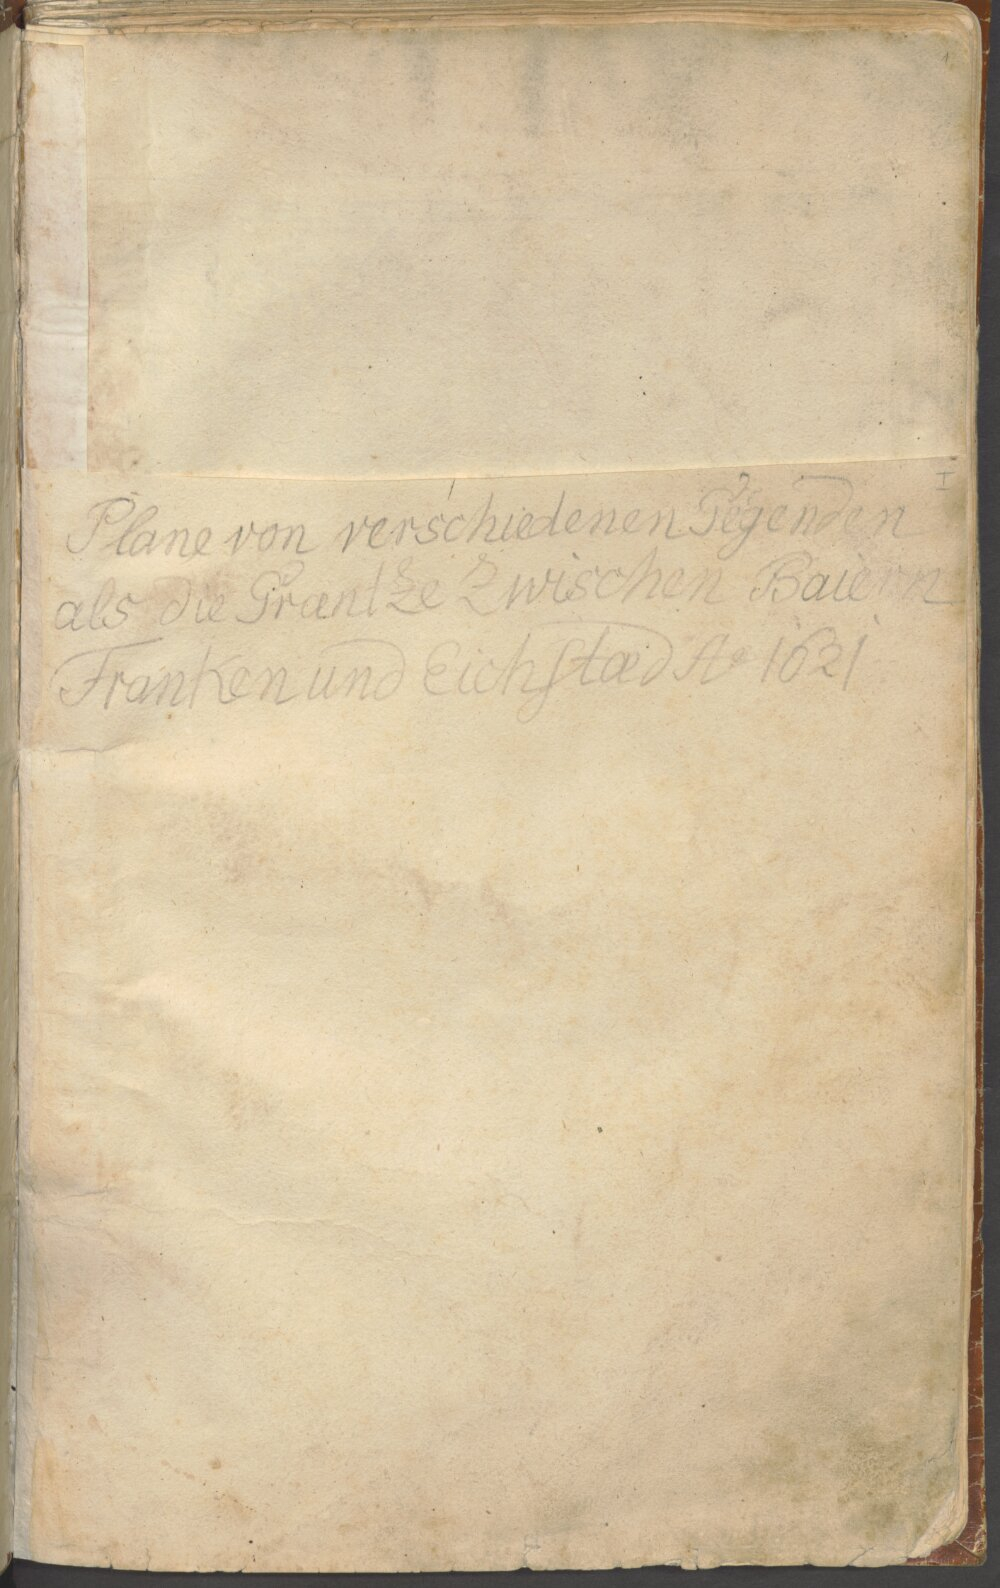 1
I
Plane von verschiedenen Gegenden
als die Græntze Zwischen Baiern
Franken und Eichstæd Ao 1621